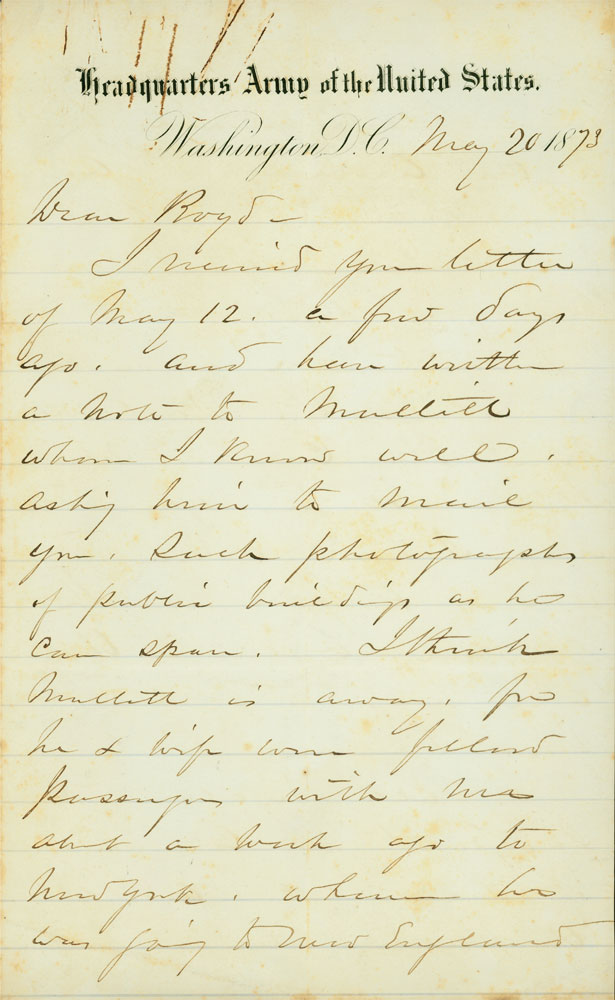 Headquarters Army of the United States.
Washington D.C. May 20 1873
Dear Boyd -
I received your letter
of May 12. a few days
ago. and have written
a note to Mullett
whom I know well.
asking him to mail
you. Such photographs
of public buildings as he
can spare. I think
Mullett is away. for
he & wife were fellow
passengers with me
about a week ago to
New York. whence he
was going to New England